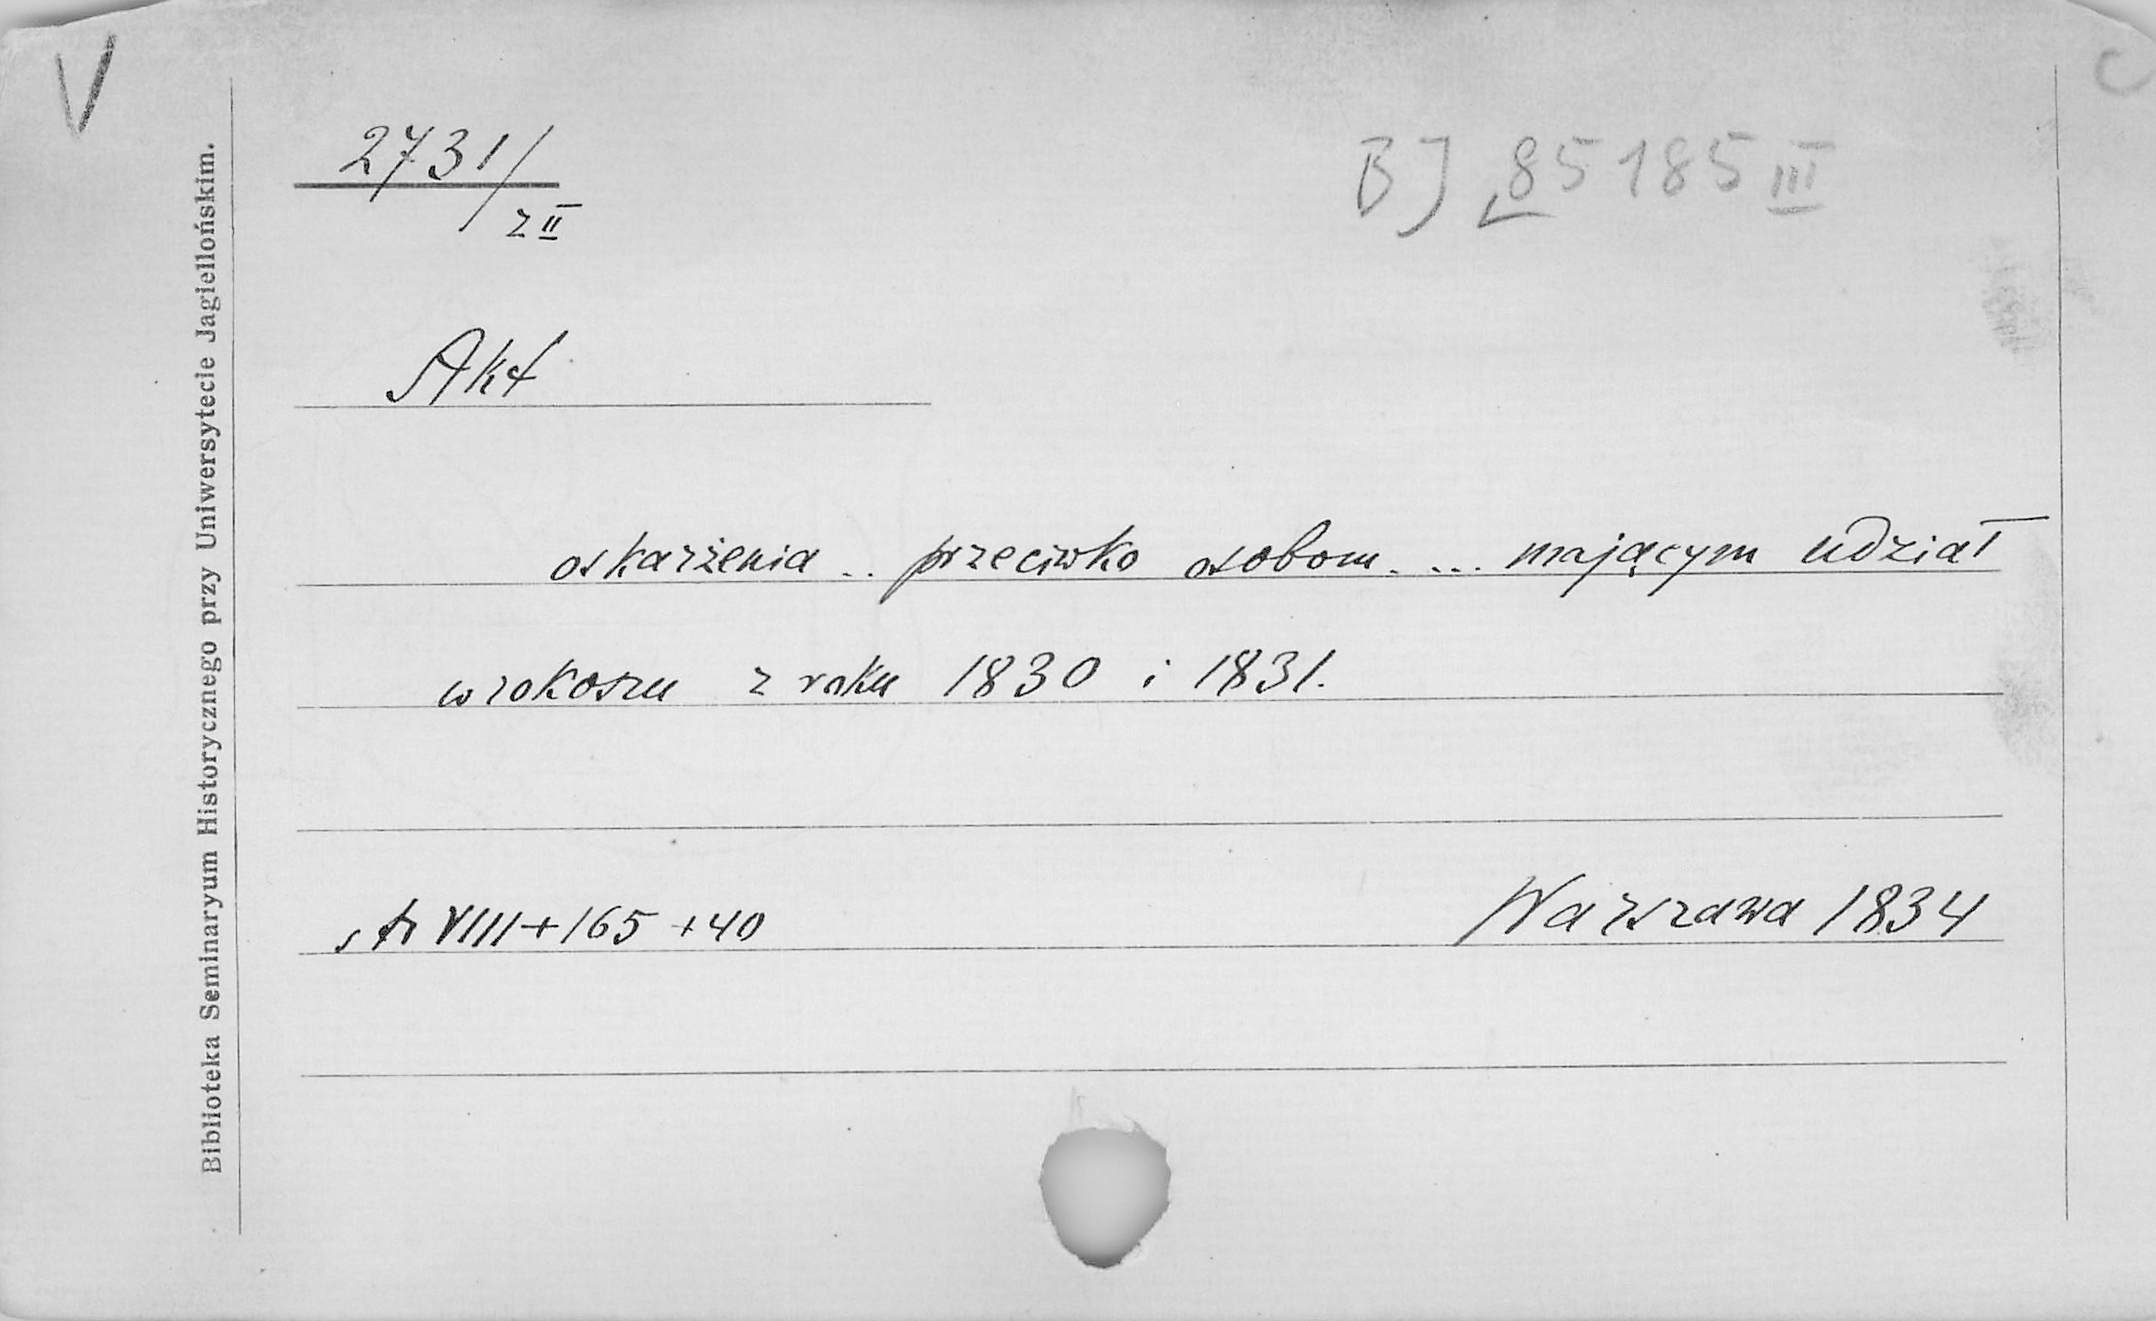 V
C
2731/
z II
BJ 85185 III
Akt
oskarżenia .. przeciwko osobom .... mającym udział
w rokoszu z roku 1830 i 1831.
str VIII + 165 + 40
Warszawa 1834
Biblioteka Seminaryum Historycznego przy Uniwersytecie Jagiellońskim.